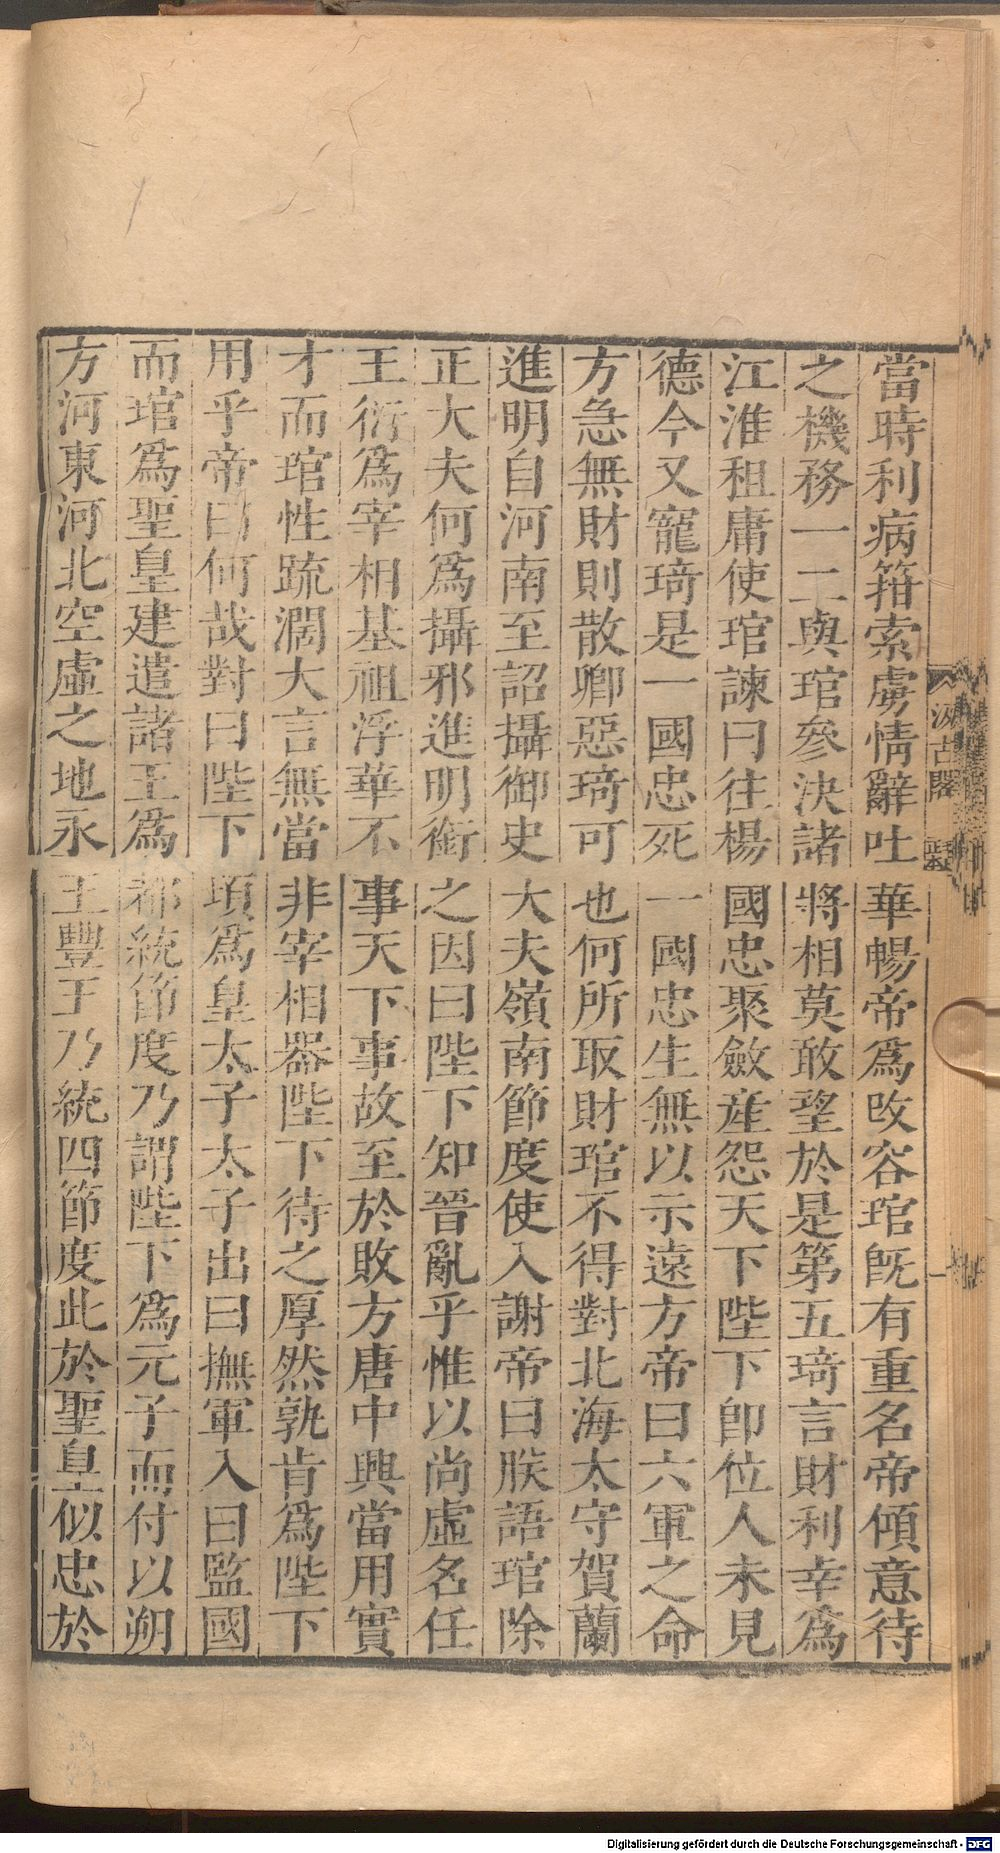 當時利病箝索虜情辭吐華暢帝爲改容琯旣有重名帝傾意待
之機務一二與琯參決諸將相莫敢望於是第五琦言財利幸爲
江淮租庸使琯諫曰往楊國忠聚斂産怨天下陛下卽位人未見
德今又寵琦是一國忠死一國忠生無以示遠方帝曰六軍之命
方急無財則散卿惡琦可也何所取財琯不得對北海太守賀蘭
進明自河南至詔攝御史大夫嶺南節度使入謝帝曰朕語琯除
正大夫何爲攝邪進明銜之因曰陛下知晉亂乎惟以尚虛名任
王衍爲宰相基祖浮華不事天下事故至於敗方唐中興當用實
才而琯性疏濶大言無當非宰相器陛下待之厚然孰肯爲陛下
用乎帝曰何哉對曰陛下頃爲皇太子太子出曰撫軍入曰監國
而琯爲聖皇建遣諸王爲都統節度乃謂陛下爲元子而付以朔
方河東河北空虛之地永王豐王乃統四節度此於聖皇似忠於
汲古閣
正本
Digitalisierung gefördert durch die Deutsche Forschungsgemeinschaft - DFG